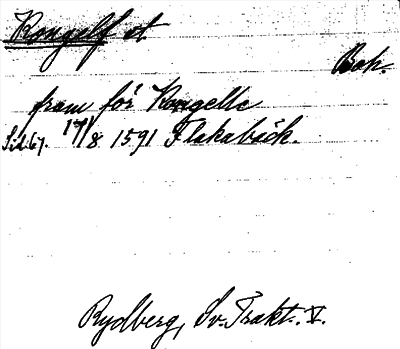 Kongelf st
Boh.
fram för Kongelle
Sid 67. 17/8 1591 Flakabäck.
Rydberg, Sv. Trakt. V.